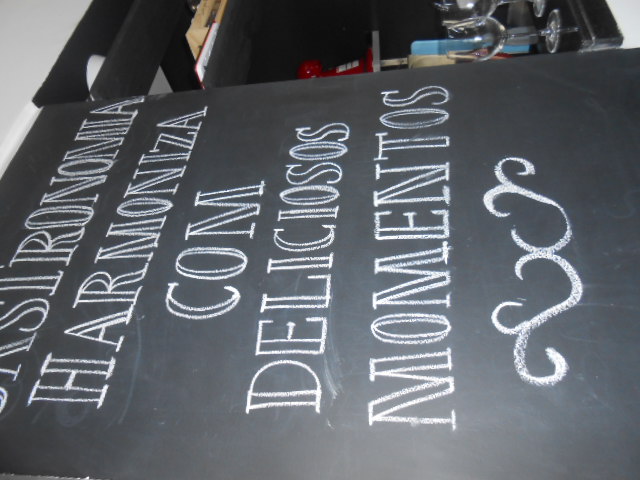 GASTRONOMIA
HARMONIZA
COM
DELICIOSOS
MOMENTOS